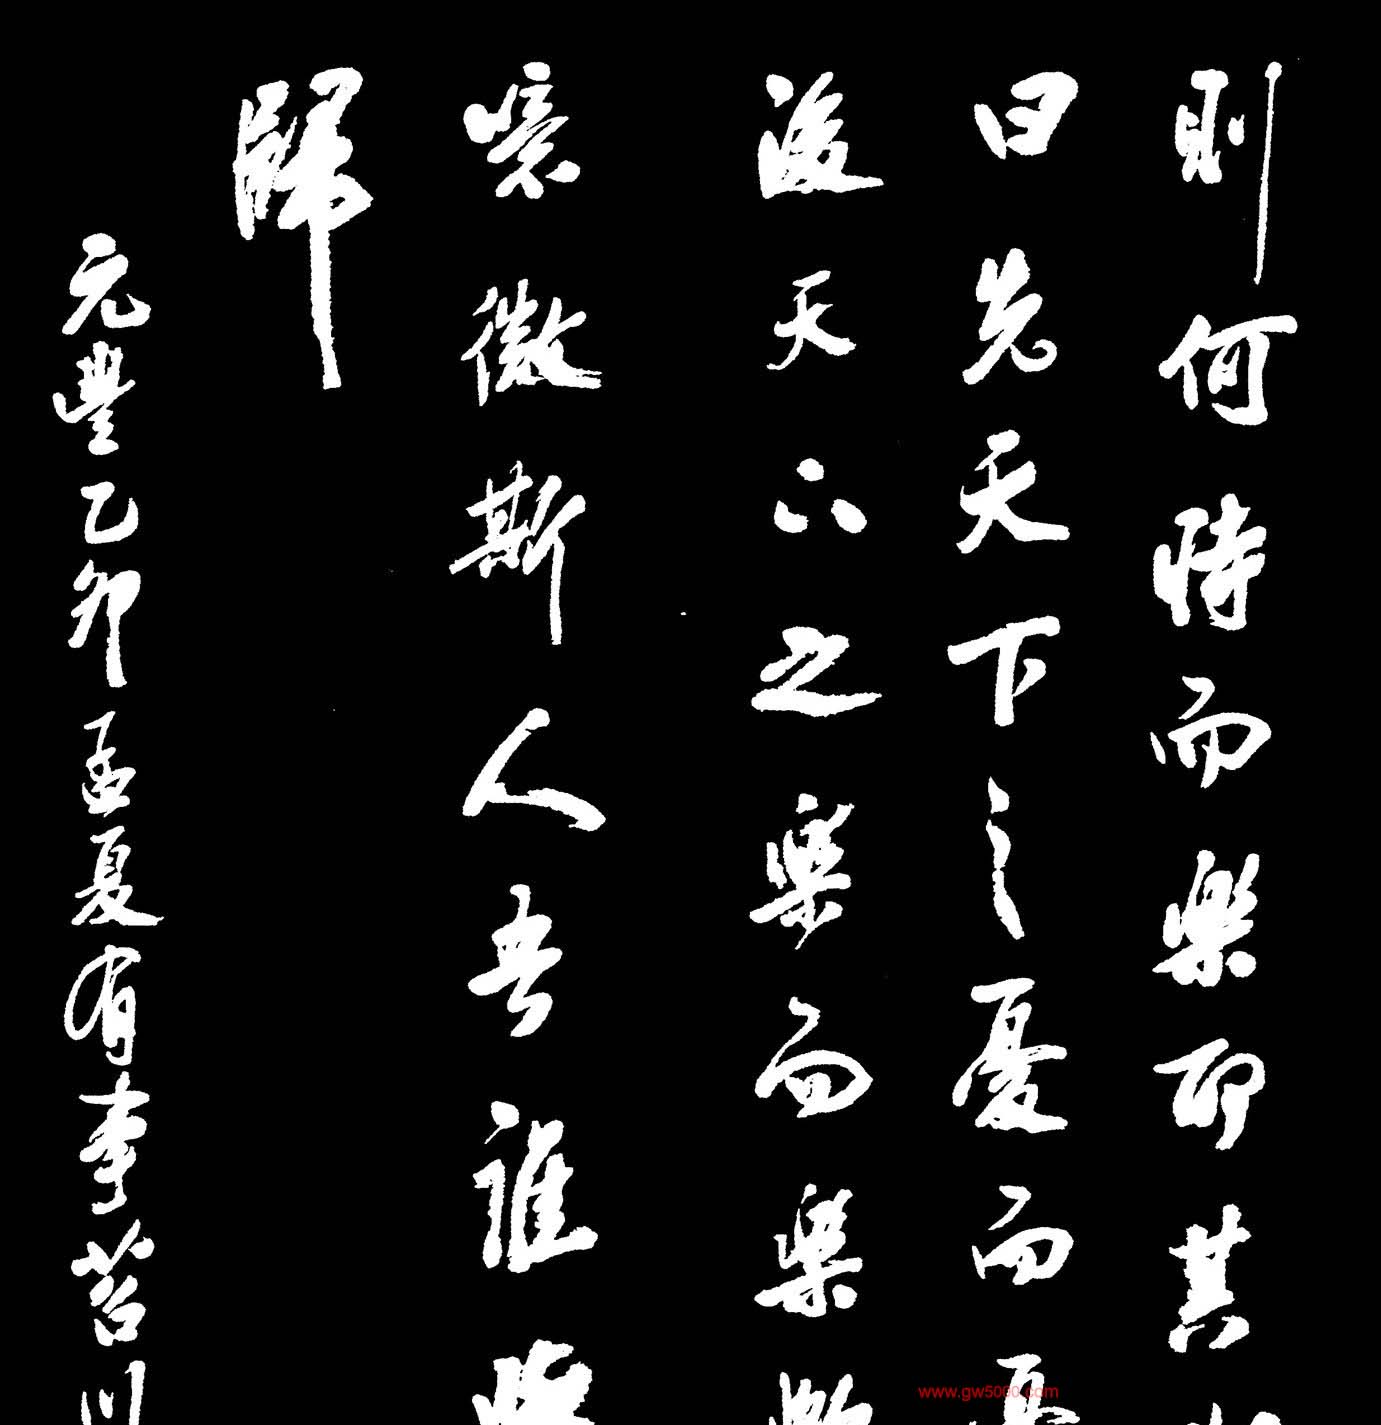 則何時而樂耶其
曰先天下之憂而憂
後天下之樂而樂歟
噫微斯人吾誰與
歸
元豐乙卯孟夏有事苕川
www.gw5000.com